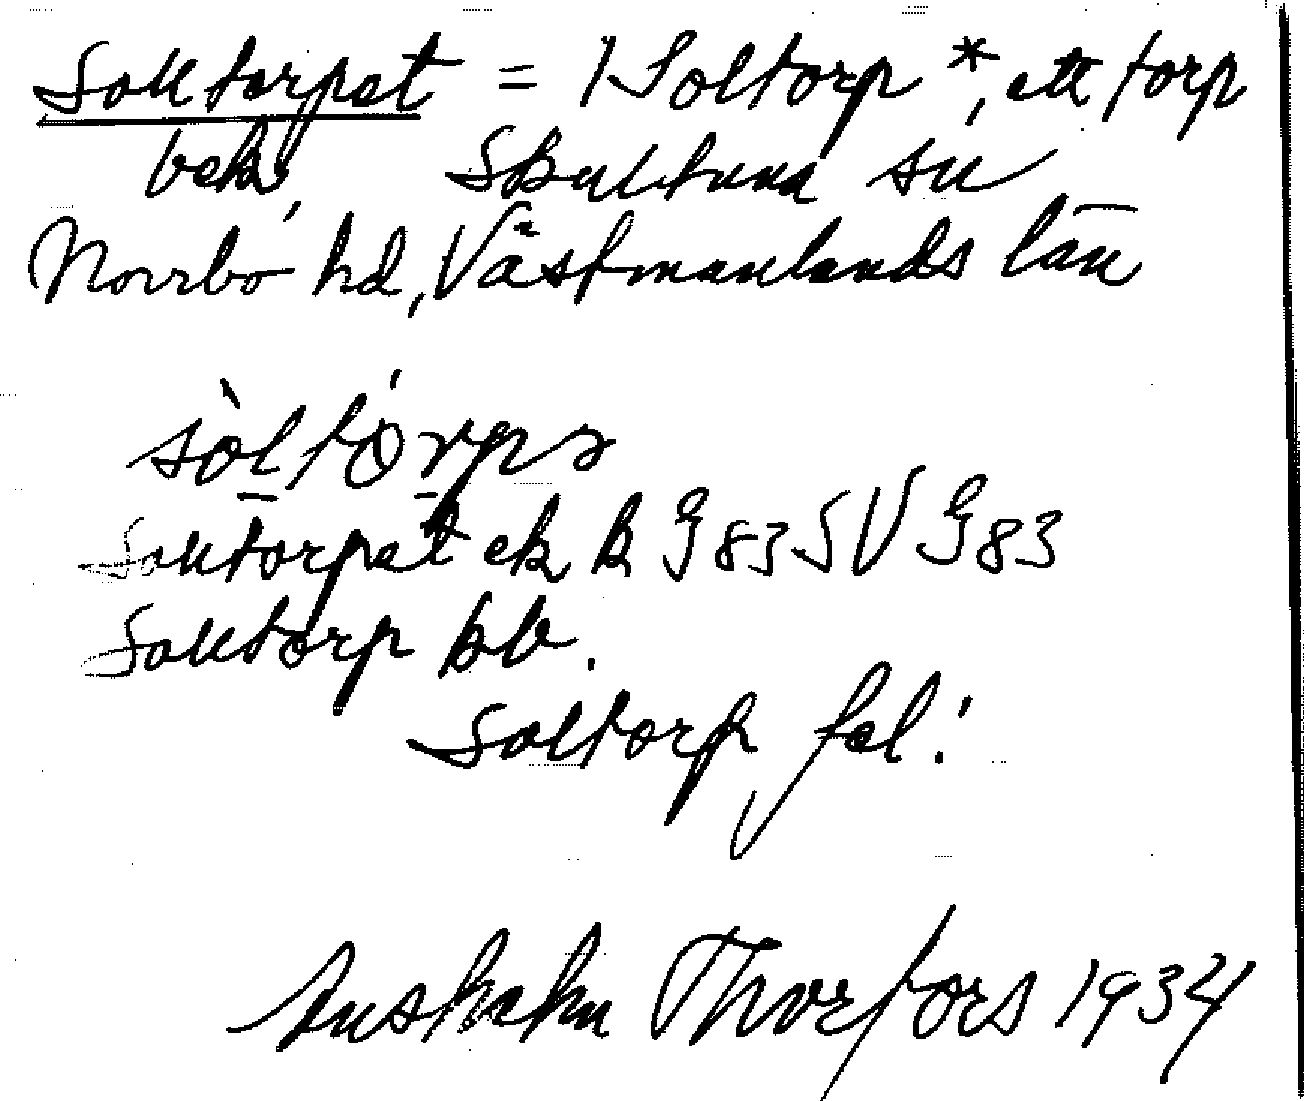 Soltorpet = 1 Soltorp *, ett torp
beb., Skultuna sn
Norrbo hd, Västmanlands län
sòltórps
Soltorpet ek k G 83 SV G 83
Soltorp kb.
Soltorp fel!
Thorfors 1934